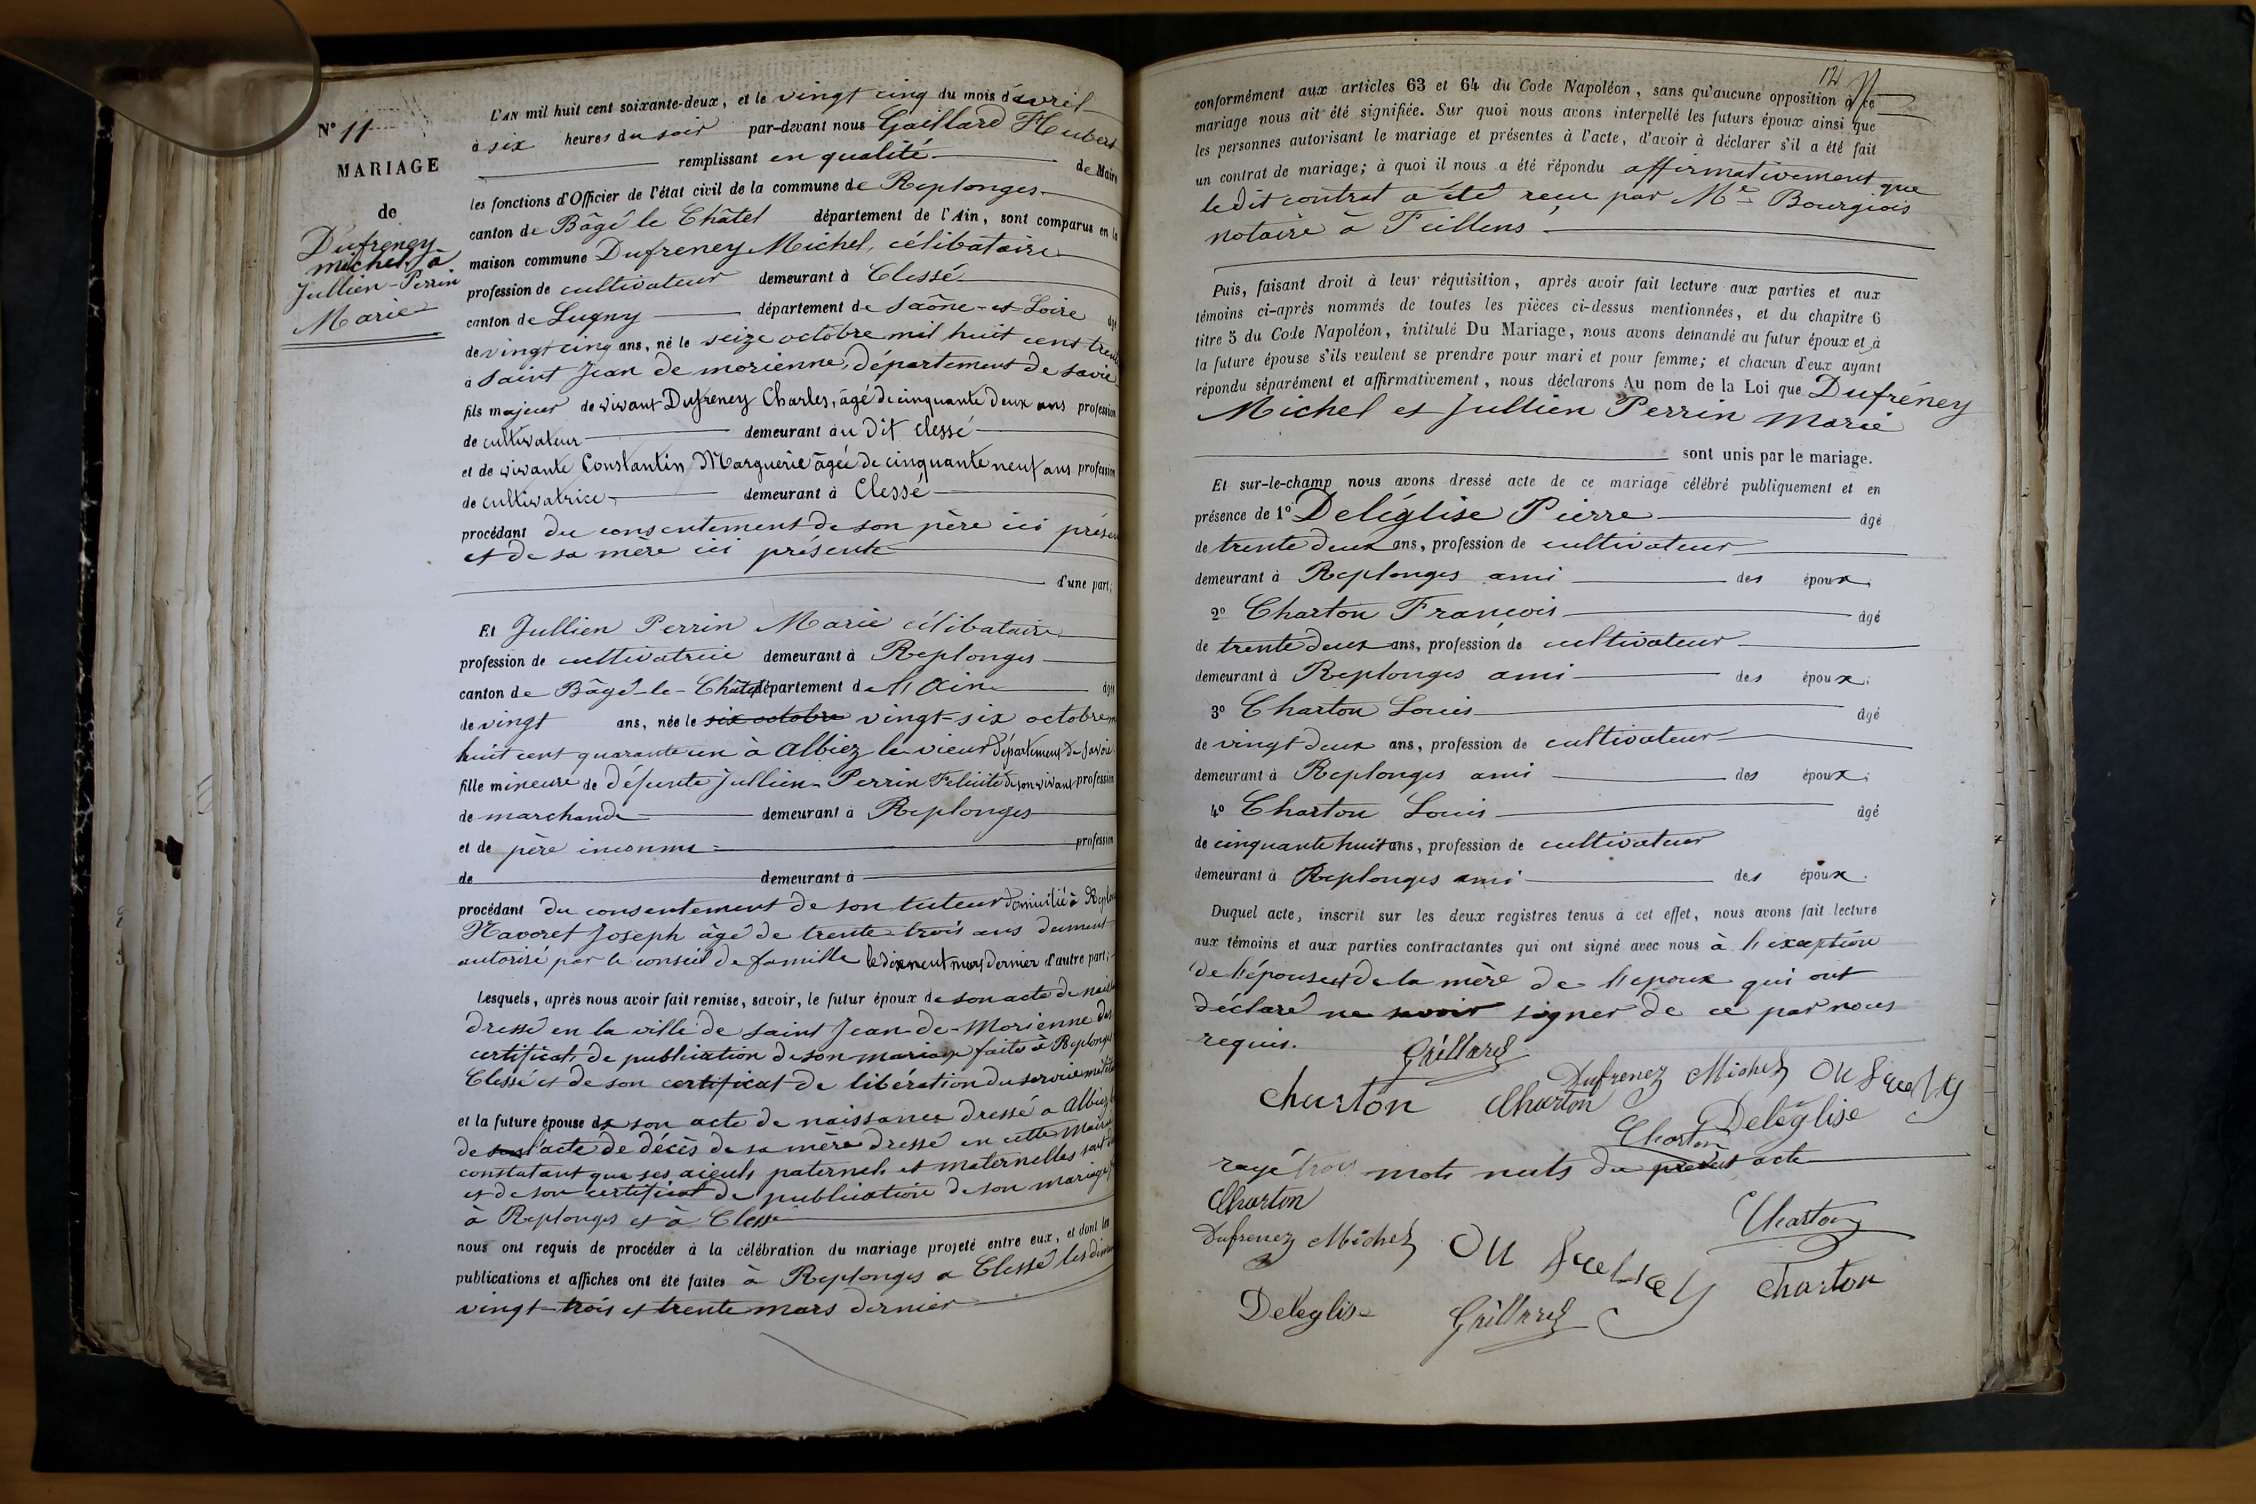 N° 11
MARIAGE
de
Dufreney
michel à
Jullien-Perrin
Marie
L'AN mil huit cent soixante-deux, et le vingt cinq du mois d'avril
à six heures du soir par-devant nous Gaillard Hubert
remplissant en qualité de Maire
les fonctions d'Officier de l'état civil de la commune de Replonges
canton de Bâgé le Châtel département de l'Ain, sont comparus en la
maison commune Dufreney Michel, célibataire
profession de cultivateur demeurant à Clessé
canton de Lugny département de Saône-et-Loire âgé
de vingt cinq ans, né le seize octobre mil huit cent trente
à Saint Jean de morienne, département de savoie
fils majeur de vivant Dufreney Charles, âgé de cinquante deux ans profession
de cultivateur demeurant au dit clessé
et de vivante Constantin Marguerie âgée de cinquante neuf ans profession
de cultivatrice demeurant à Clessé
procédant du consentement de son père ici présent
et de sa mère ici présente
d'une part;
Et Jullien Perrin Marie célibataire
profession de cultivatrice demeurant à Replonges
canton de Bâgé-le-Châtel département de l'Ain âgée
de vingt ans, née le six octobre vingt-six octobre m
huit cent quarante un à Albiez le vieux département de savoie
fille mineure de défunte Jullien-Perrin Felicité de son vivant profession
de marchande demeurant à Replonges
et de père inconnu profession
de demeurant à
procédant du consentement de son tuteur domicilié à Replon
Navoret Joseph âgé de trente trois ans dument
autorisé par le conseil de famille le dixneuf mars dernier d'autre part;
Lesquels, après nous avoir fait remise, savoir, le futur époux de son acte de naiss
dressé en la ville de saint Jean-de-Morienne des
certificats de publication de son mariage faits à Replonges
Clessé et de son certificat de libération du service milit
et la future épouse de son acte de naissance dressé a Albiez
de l'acte de décès de sa mère dressé en cette mairie
constatant que ses aieuls paternels et maternelles sont
et de son certificat de publication de son mariage
à Replonges et à Clessé
nous ont requis de procéder à la célébration du mariage projeté entre eux, et dont les
publications et affiches ont été faites à Replonges a Clessé les diman
vingt-trois et trente mars dernier
121
conformément aux articles 63 et 64 du Code Napoléon, sans qu'aucune opposition à ce
mariage nous ait été signifiée. Sur quoi nous avons interpellé les futurs époux ainsi que
les personnes autorisant le mariage et présentes à l'acte, d'avoir à déclarer s'il a été fait
un contrat de mariage; à quoi il nous a été répondu affirmativement que
le dit contrat a été recu par Me Bourgeois
notaire à Feillens
Puis, faisant droit à leur réquisition, après avoir fait lecture aux parties et aux
témoins ci-après nommés de toutes les pièces ci-dessus mentionnées, et du chapitre 6
titre 5 du Code Napoléon, intitulé Du Mariage, nous avons demandé au futur époux et à
la future épouse s'ils veulent se prendre pour mari et pour femme; et chacun d'eux ayant
répondu séparément et affirmativement, nous déclarons Au nom de la Loi que Dufréney
Michel et Jullien Perrin Marie
sont unis par le mariage.
Et sur-le-champ nous avons dressé acte de ce mariage célébré publiquement et en
présence de 1° Deléglise Pierre âgé
de trente deux ans, profession de cultivateur
demeurant à Replonges ami des époux.
2° Charton Francois âgé
de trente deux ans, profession de cultivateur
demeurant à Replonges ami des époux.
3° Charton Louis âgé
de vingt deux ans, profession de cultivateur
demeurant à Replonges ami des époux.
4° Charton Louis âgé
de cinquante huit ans, profession de cultivateur
demeurant à Replonges ami des époux.
Duquel acte, inscrit sur les deux registres tenus à cet effet, nous avons fait lecture
aux témoins et aux parties contractantes qui ont signé avec nous à l'exception
de l'épouse et de la mère de l'époux qui ont
déclaré ne savoir signer de ce par nous
requis.
Gaillard
Dufrenez Michel
Charton Charton
Deléglise
Charton
rayé trois mots nuls du présent acte
Charton
Charton
Dufrenez Michel
Charton
Deleglise Gaillard